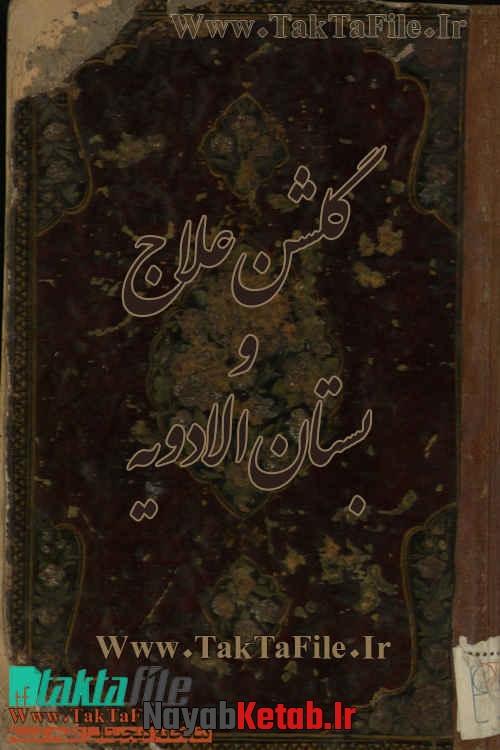 Www.TakTaFile.Ir
گلشن علاج
و
بستان الادویه
Www.TakTaFile.Ir
taktafile
Www.TakTaF
NayabKetab.Ir